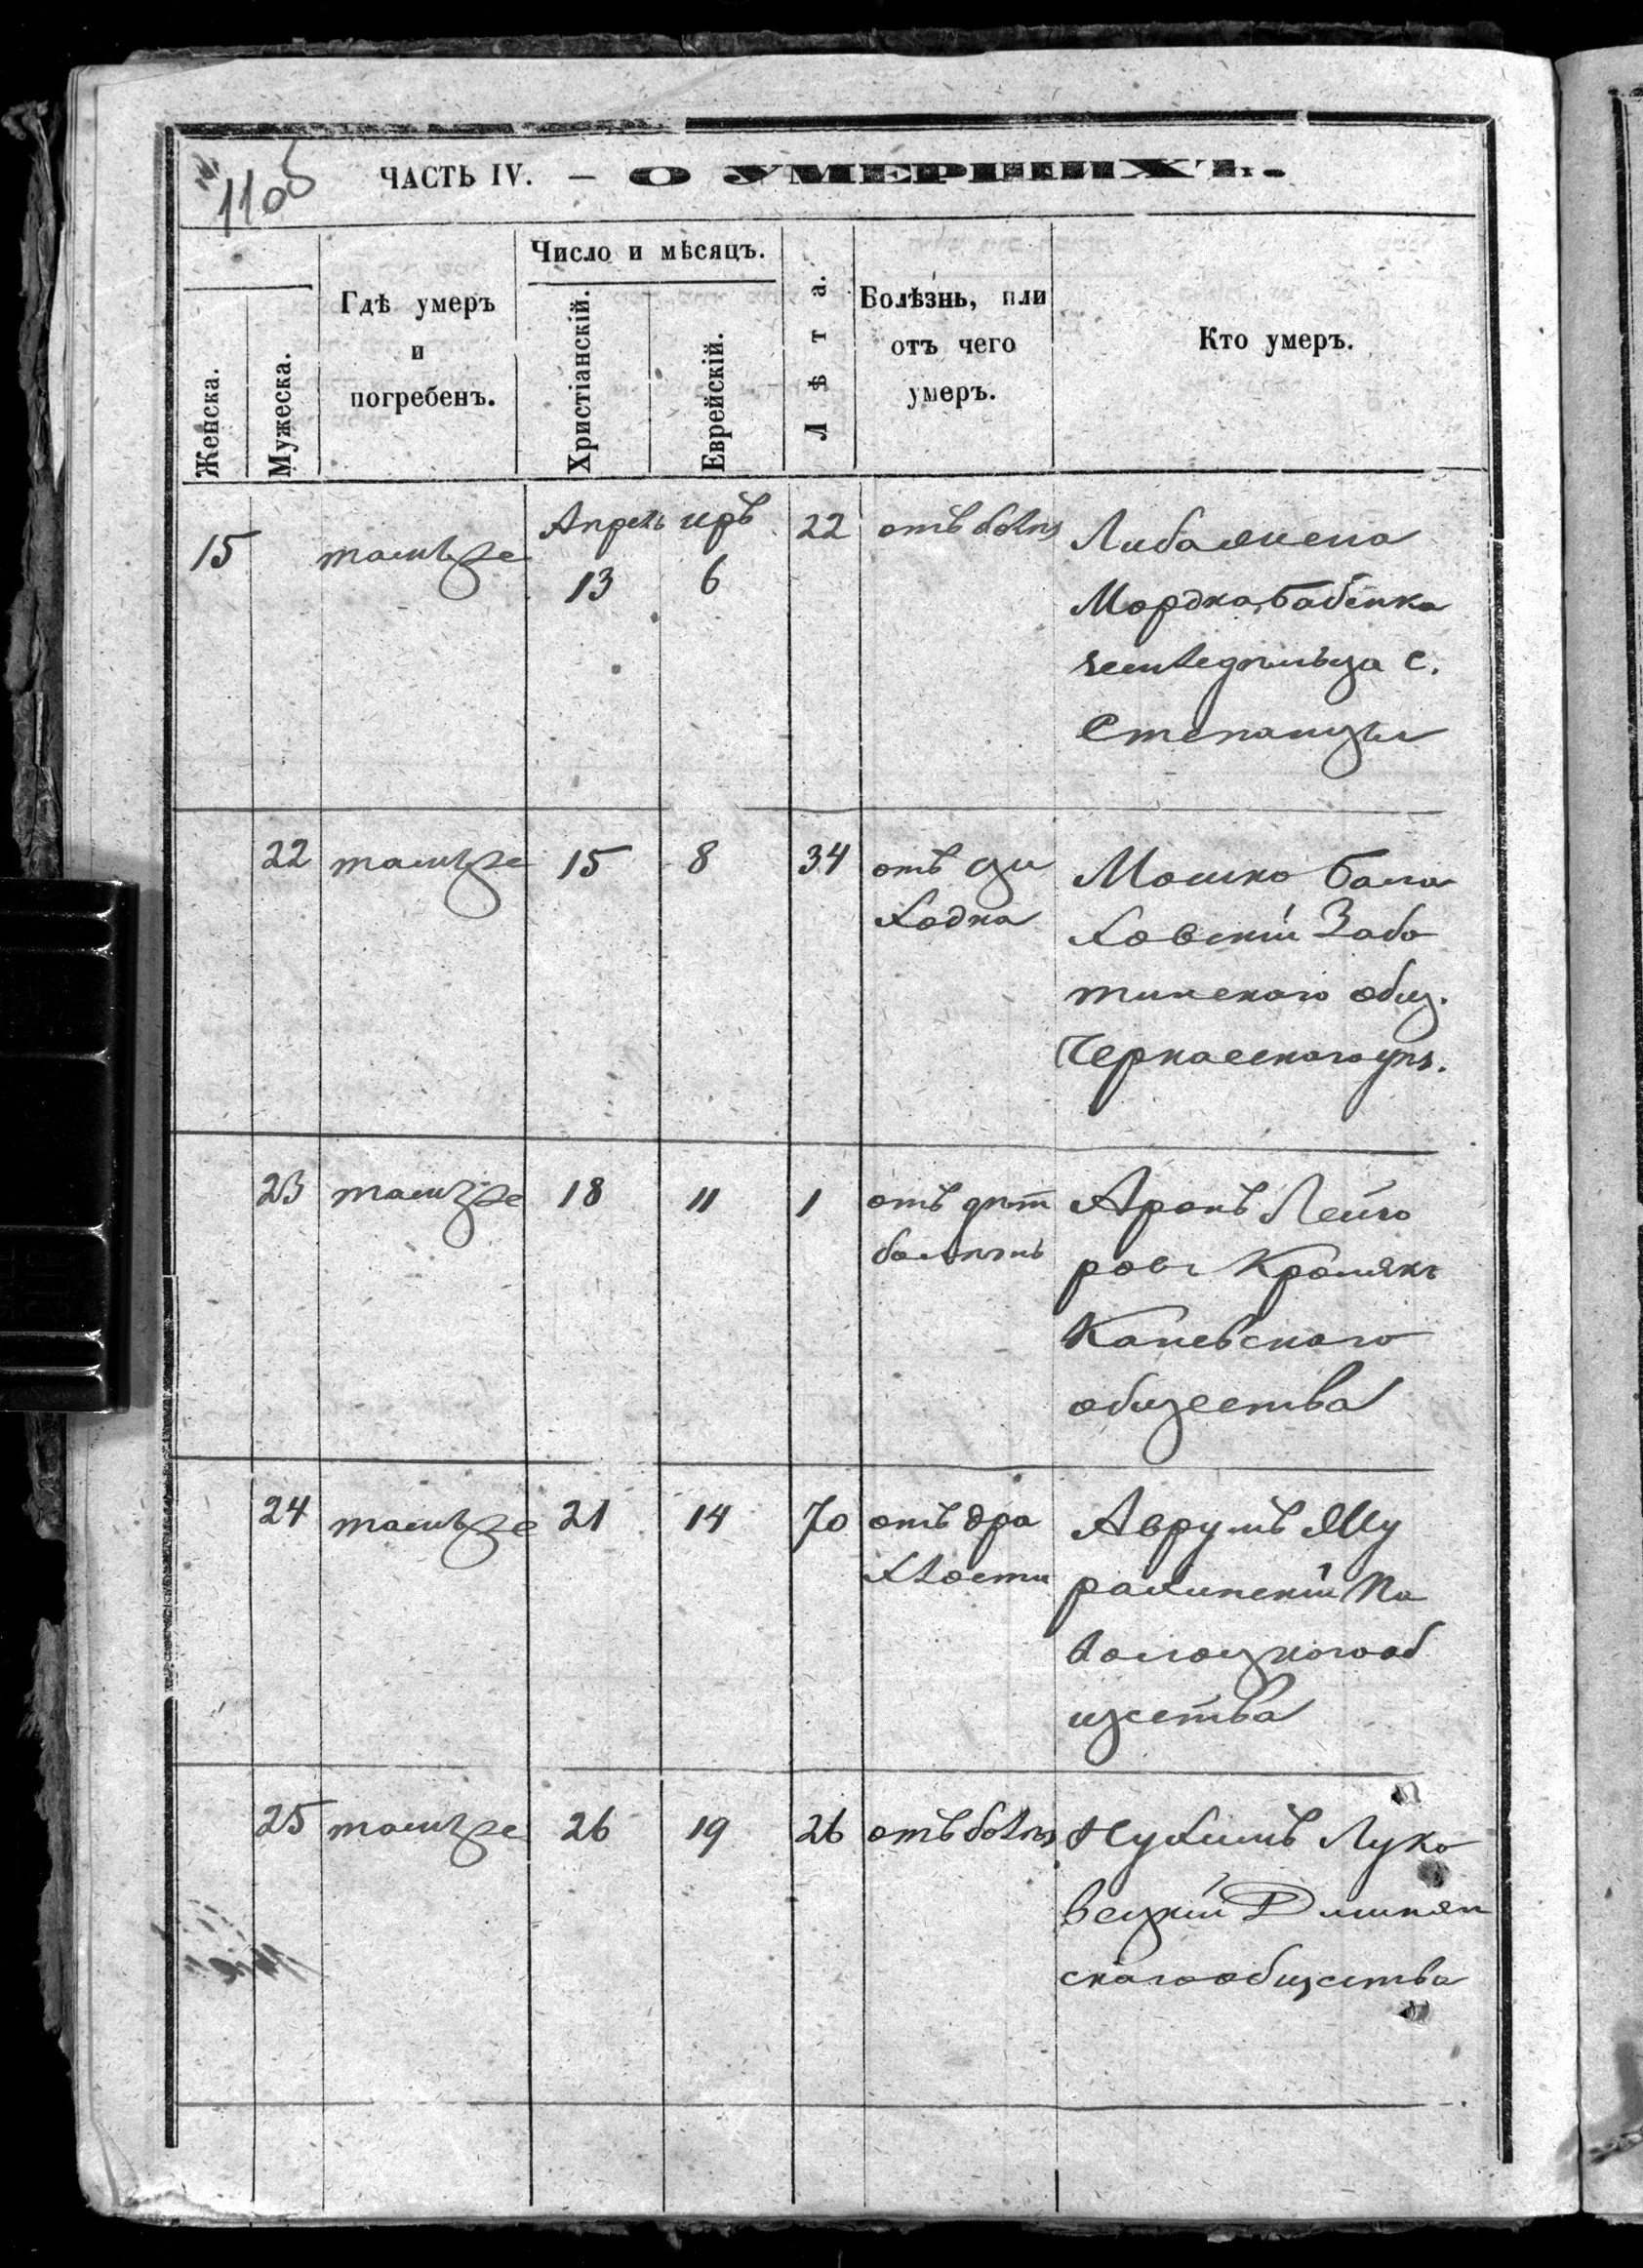 1105
ЧАСТЬ IV. — О УМЕРШИХЪ.
Женска.
Мужеска.
Гдѣ умеръ
и
погребенъ.
Число и мѣсяцъ.
Христіанскій.
Еврейскій.
Лѣта.
Болѣзнь, или
отъ чего
умеръ.
Кто умеръ.
15 тамъ же Апрель 13 иръ 6 22 отъ
Либа жена
Мордка Бабенка
земледѣльца с.
Степанцы
22 тамъ же 15 8 34 отъ
ходка
Мошко Бала
ховскій
тинскаго общ.
Черкасскаго уѣз.
23 тамъ же 18 11 1 отъ дѣт
болѣзнь
Аронъ
ровъ
Каневскаго
общества
24 тамъ же 21 14 70 отъ дра
хлости
Аврумъ Му
рахинскій
об
щества
25 тамъ же 26 19 26 отъ
Нухимъ Луко
вецкій
скаго общества